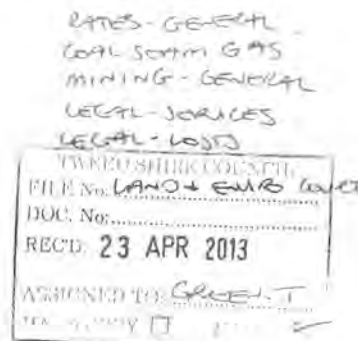 RATES - GENERAL
COAL SEAM GAS
MINING - GENERAL
LEGAL - SERVICES
LEGAL - COSTS
TWEED SHIRE COUNCIL
FILE No. LAND & ENVIRO COURT
DOC. No:
REC'D: 23 APR 2013
ASSIGNED TO: GREEN. T